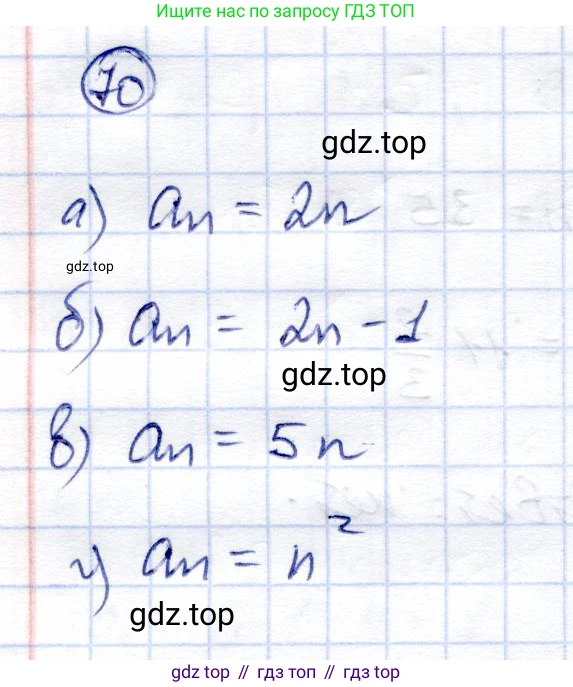 Ищите нас по запросу ГДЗ ТОП
70
gdz.top
а) an = 2n
gdz.top
б) an = 2n - 1
gdz.top
в) an = 5n
г) an = n²
gdz.top
gdz.top // гдз топ // гдз top